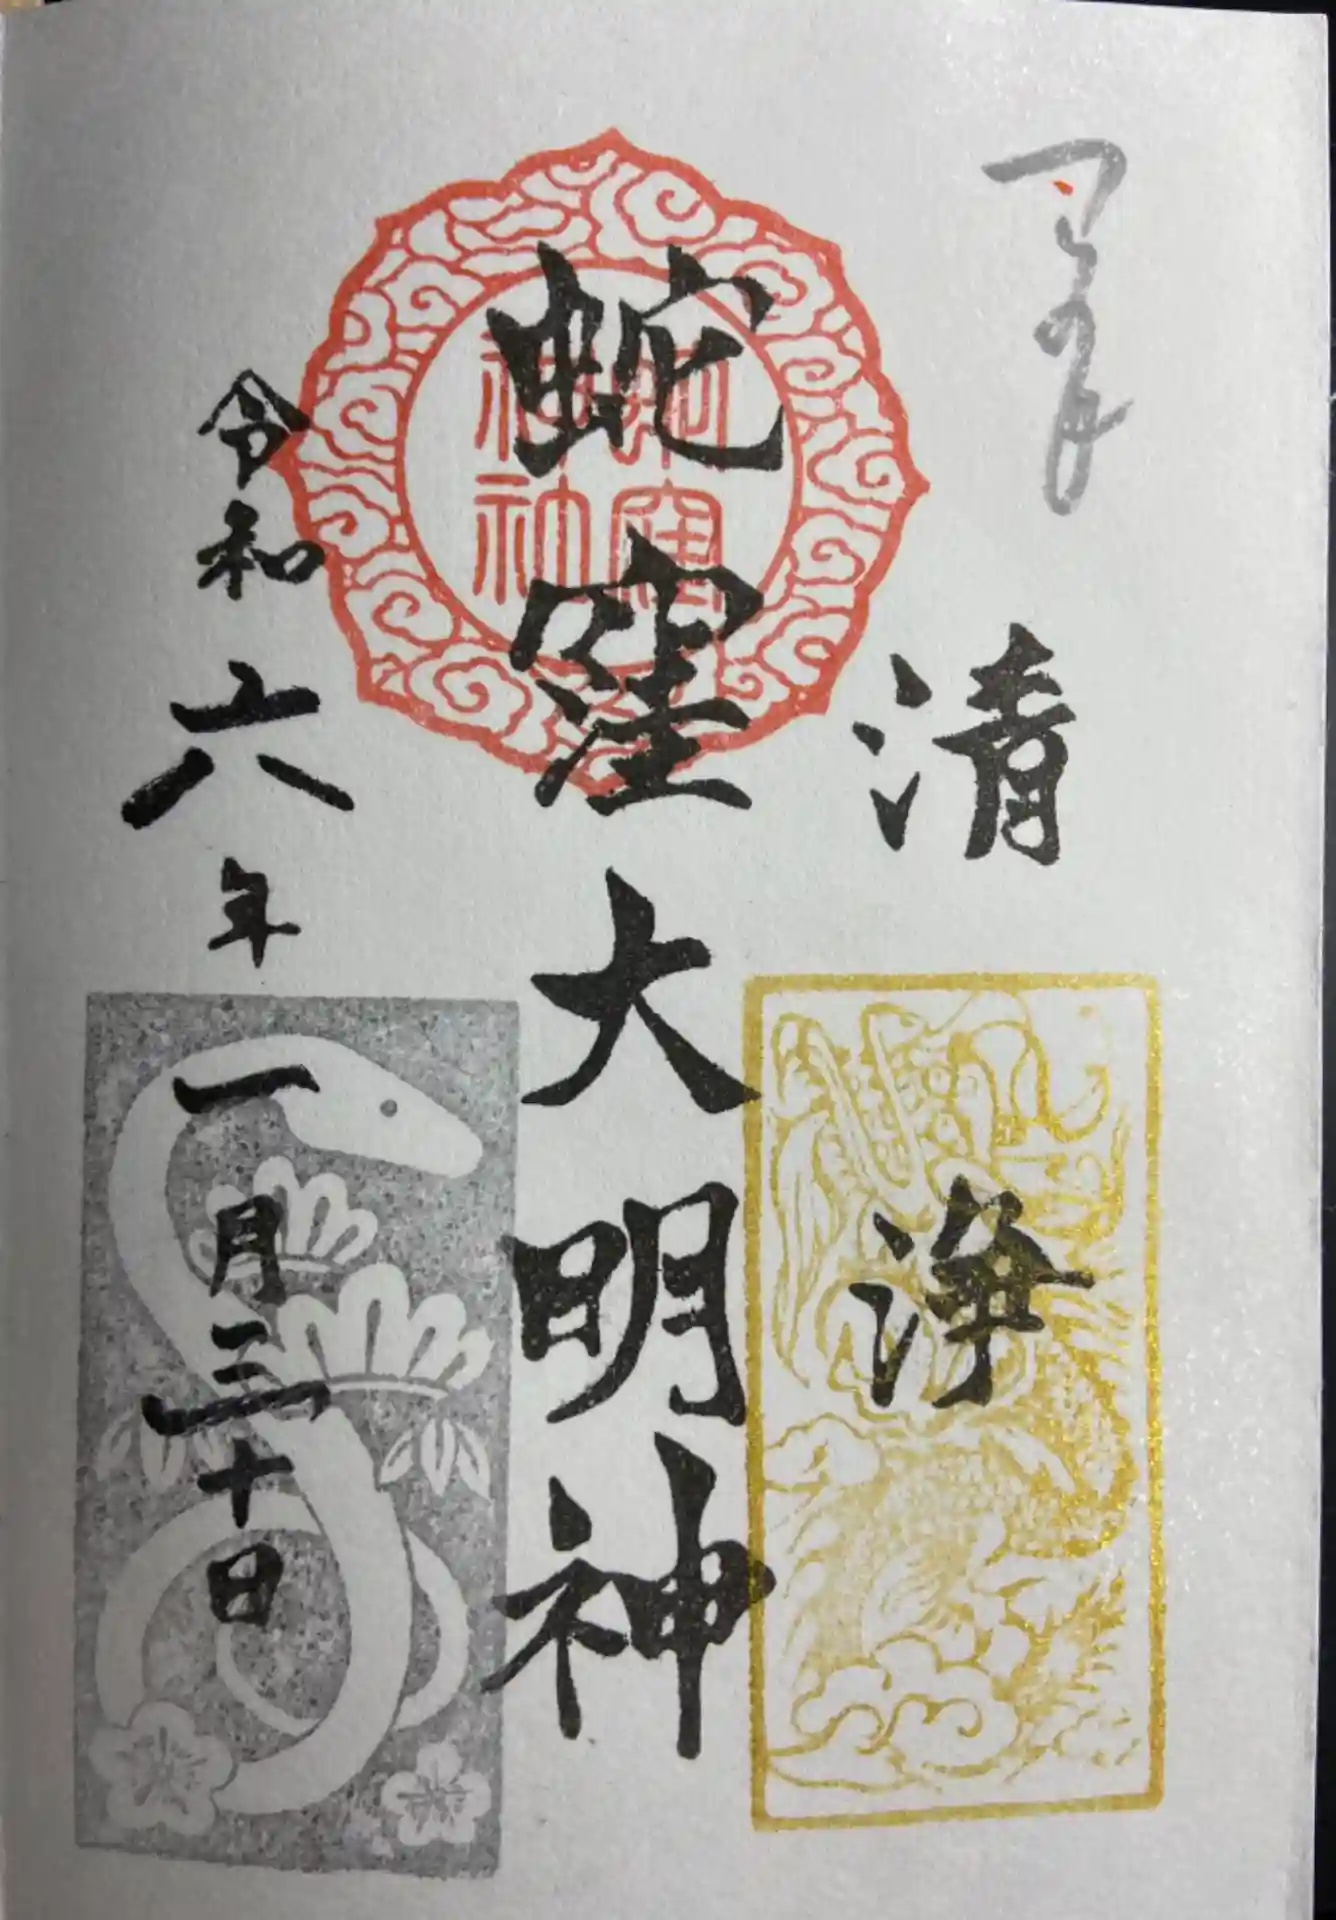 清浄
蛇窪大明神
蛇窪
神社
令和六年一月三十日